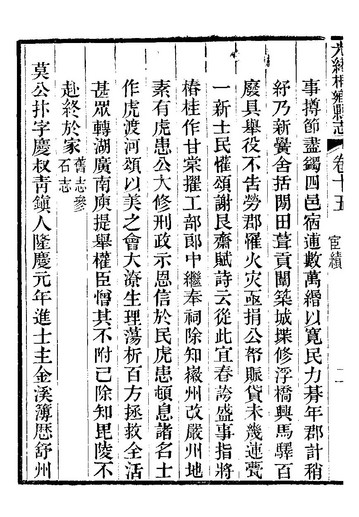 光緒桐鄉縣志
卷十五
宦績
二
事撙節盡蠲四邑宿逋數萬緡以寬民力朞年郡計稍
紓乃新黌舍括閒田葺貢闈築城堞修浮橋興馬驛百
廢具舉役不告勞郡罹火災亟捐公帑賑貸未幾連甍
一新士民懽頌謝艮齋賦詩云從此宜春誇盛事指將
椿桂作甘棠擢工部郎中繼奉祠除知徽州改嚴州地
素有虎患公大修刑政示恩信於民虎患頓息諸名士
作虎渡河頌以美之會大潦生理蕩析百方拯救全活
甚眾轉湖廣南庾提舉權臣憎其不附己除知毘陵不
赴終於家
舊志參
石志
莫公抃字慶叔青鎮人隆慶元年進士主金溪簿歷舒州